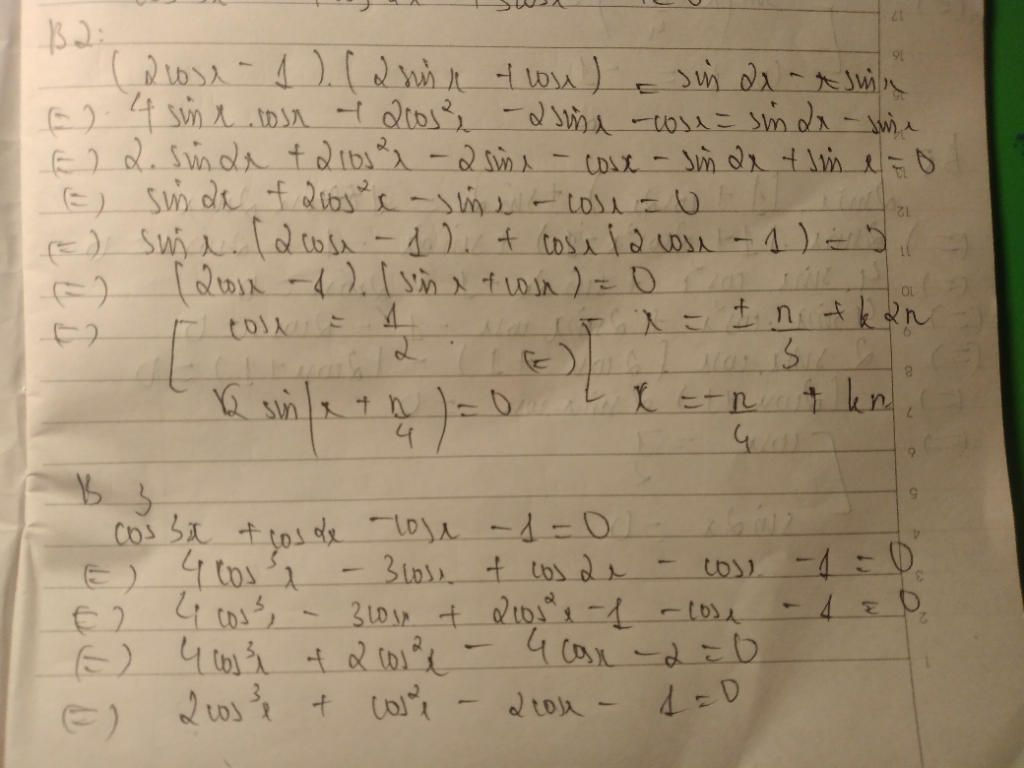 B2:
(2cosx - 1).(2sinx + cosx) = sin 2x - sinx
(=) 4 sinx.cosx + 2cos²x - 2sinx - cosx = sin2x - sinx
(=) 2.sin2x + 2cos²x - 2sinx - cosx - sin2x + sinx = 0
(=) sin2x + 2cos²x - sinx - cosx = 0
(=) sinx.(2cosx - 1) + cosx(2cosx - 1) = 0
(=) (2cosx - 1).(sinx + cosx) = 0
(=) [ cosx = 1/2 (=) [ x = ± π/3 + k2π
√2 sin(x + π/4) = 0 x = -π/4 + kπ
B3
cos3x + cos2x - cosx - 1 = 0
(=) 4cos³x - 3cosx + cos2x - cosx - 1 = 0
(=) 4cos³x - 3cosx + 2cos²x - 1 - cosx - 1 = 0
(=) 4cos³x + 2cos²x - 4cosx - 2 = 0
(=) 2cos³x + cos²x - 2cosx - 1 = 0